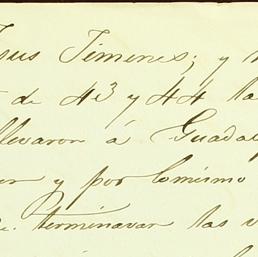 sus Jimenes; y
de 43 y 44 la
llevaron á Guadal
er y por lo mismo
terminavan las v